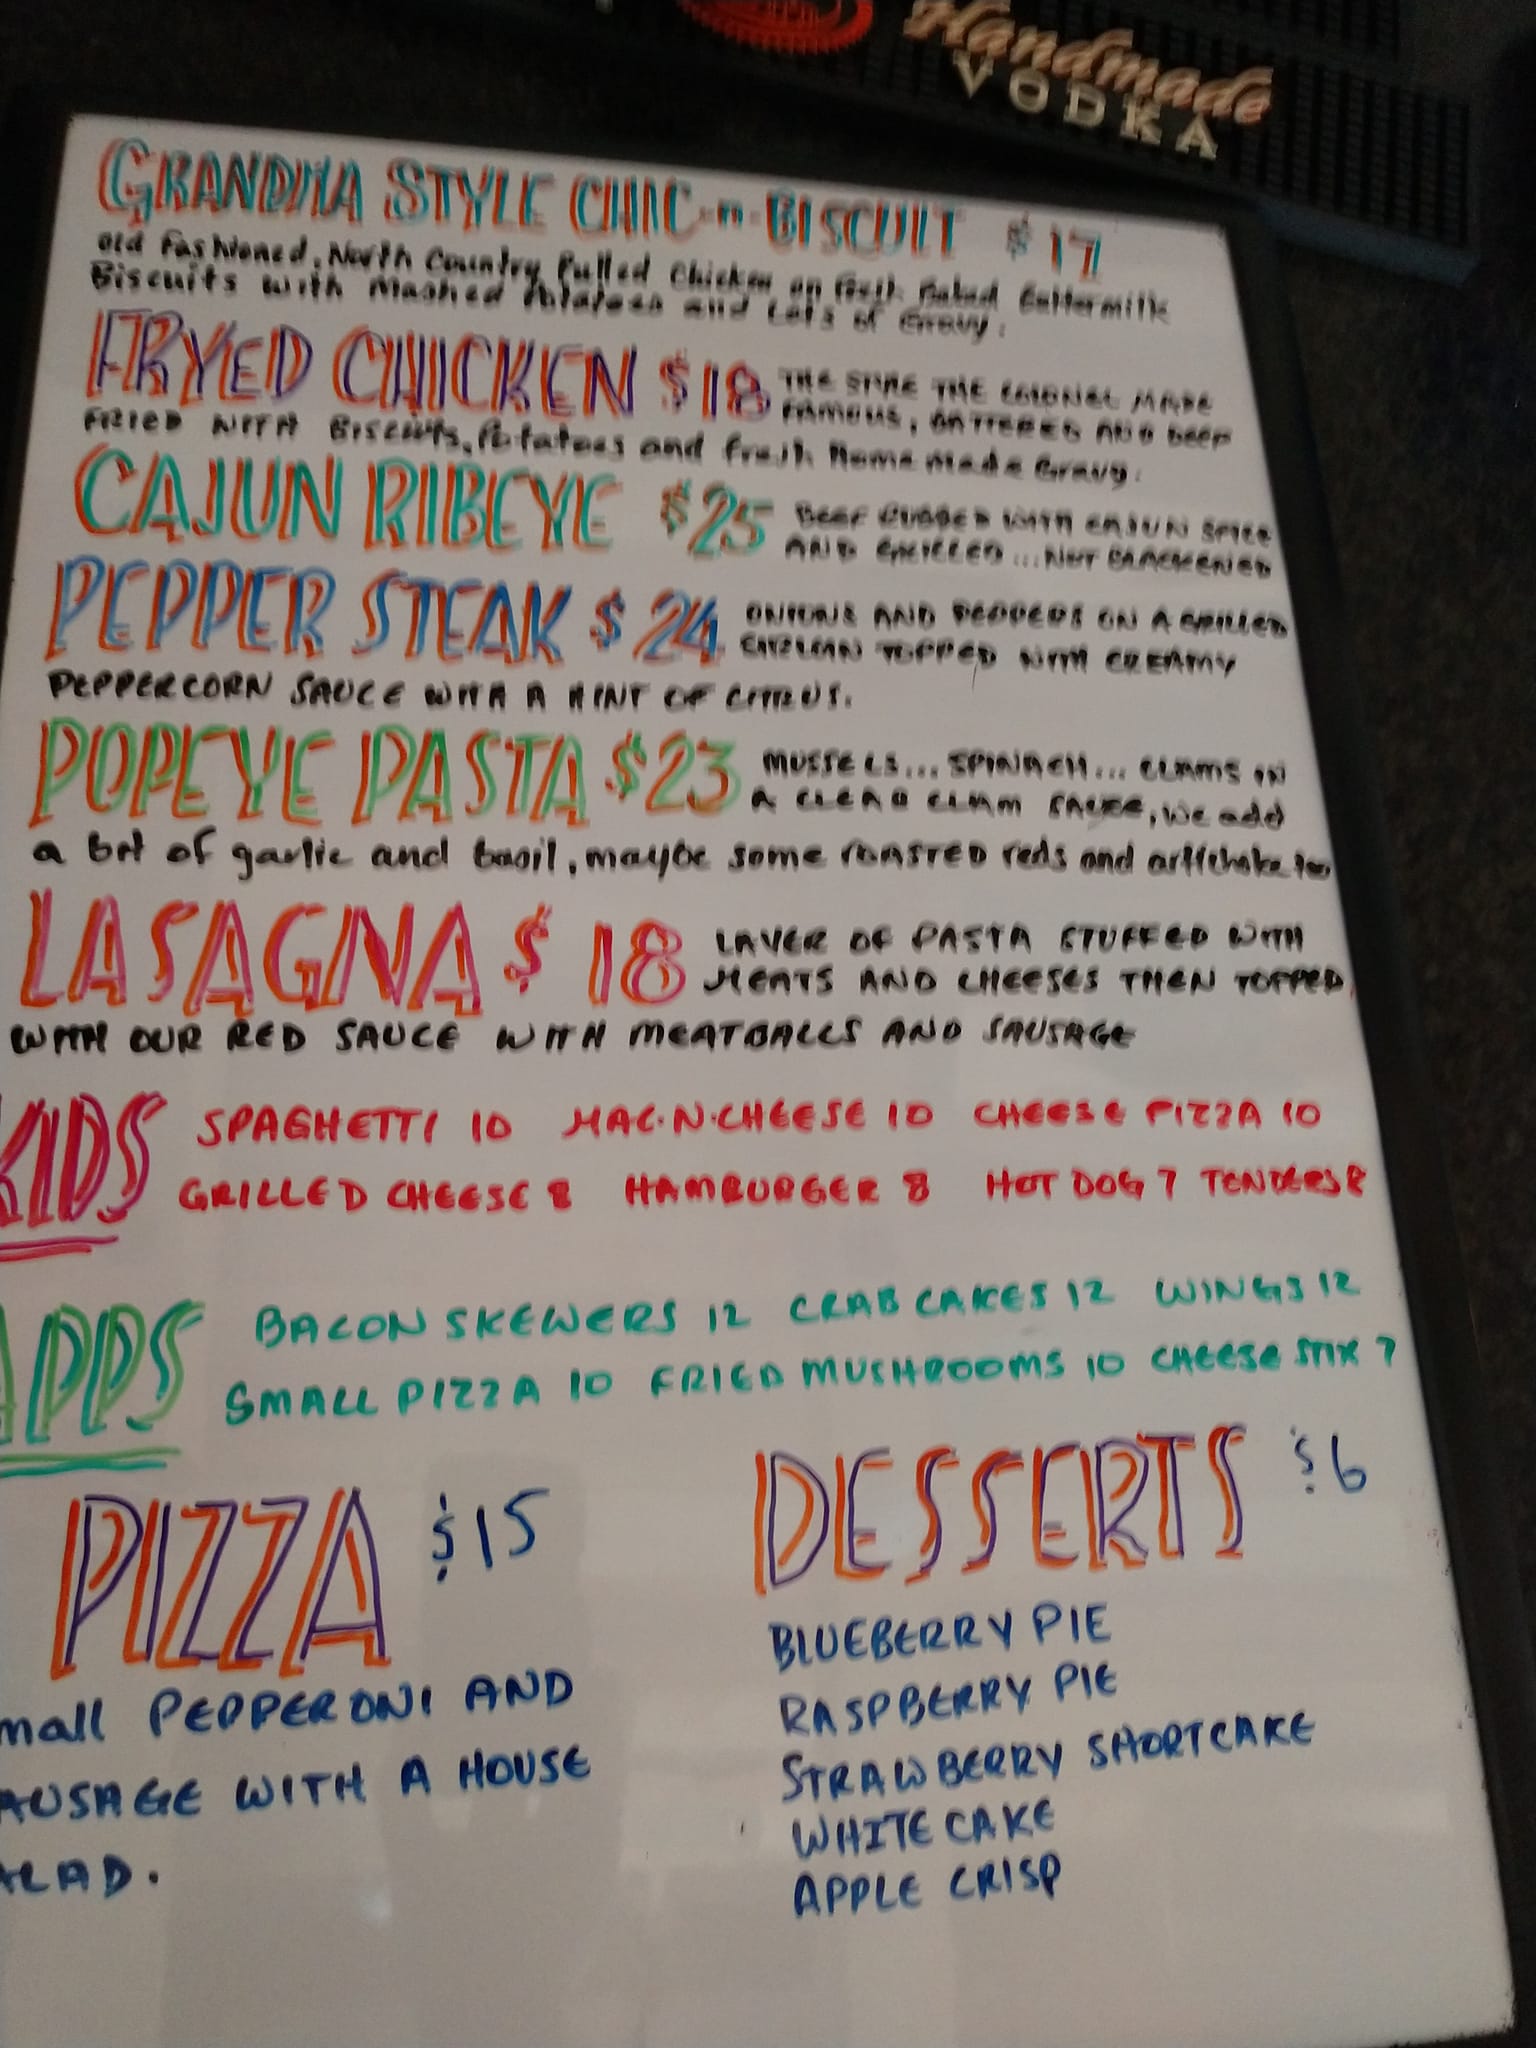 Handmade
VODKA
GRANDMA STYLE CHIC-n-BISCUIT $17
Old Fashioned, North Country Pulled Chicken on Fresh Baked Buttermilk
Biscuits with Mashed Potatoes and Lots of Gravy.
FRYED CHICKEN $18 THE SAME THE COLONEL MADE
FAMOUS, BATTERED AND DEEP
FRIED WITH Biscuits, Potatoes and Fresh Home made Gravy.
CAJUN RIBEYE $25 BEEF RUBBED WITH CAJUN SPICE
AND GRILLED... NOT BLACKENED
PEPPER STEAK $24 ONIONS AND PEPPERS ON A GRILLED
SIRLOIN TOPPED WITH CREAMY
PEPPERCORN SAUCE WITH A HINT OF CITRUS.
POPEYE PASTA $23 MUSSELS... SPINACH... CLAMS IN
A CLEAR CLAM SAUCE, We add
a bit of garlic and basil, maybe some ROASTED reds and artichoke too
LASAGNA $18 LAYER OF PASTA STUFFED WITH
MEATS AND CHEESES THEN TOPPED
WITH OUR RED SAUCE WITH MEATBALLS AND SAUSAGE
KIDS SPAGHETTI 10 MAC-N-CHEESE 10 CHEESE PIZZA 10
GRILLED CHEESE 8 HAMBURGER 8 HOT DOG 7 TENDERS 8
APPS BACON SKEWERS 12 CRAB CAKES 12 WINGS 12
SMALL PIZZA 10 FRIED MUSHROOMS 10 CHEESE STIX 7
PIZZA $15
mall PEPPERONI AND
AUSAGE WITH A HOUSE
ALAD.
DESSERTS $6
BLUEBERRY PIE
RASPBERRY PIE
STRAWBERRY SHORTCAKE
WHITE CAKE
APPLE CRISP